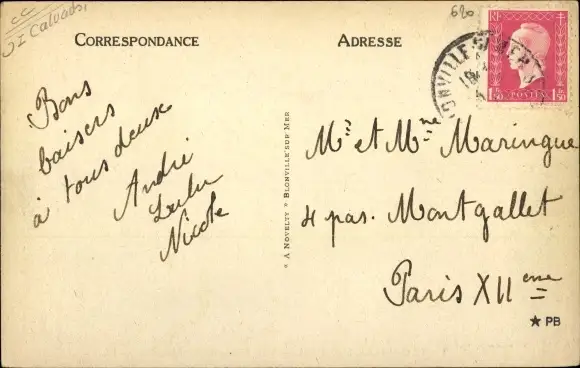 CC
JI Calvados
620
CORRESPONDANCE
ADRESSE
RF
1F50
POSTES
1F50
BLONVILLE-S-MER
Bons
baisers
à tous deux
André
Lulu
Nicole
« A NOVELTY » BLONVILLE-SUR-MER
Mr et Mme Maringue
4 pas. Montgallet
Paris XIIeme
★ PB